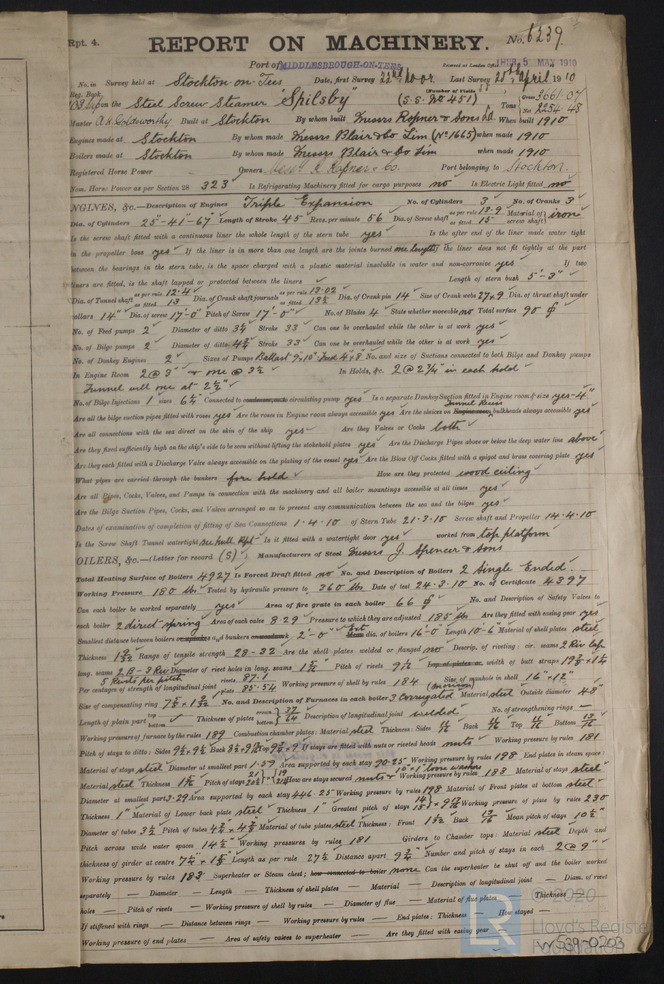 Rpt. 4.
REPORT ON MACHINERY. No. 6239
Port of MIDDLESBROUGH-ON-TEES THUR. 5 MAY 1910
No. in Survey held at Stockton-on-Tees Date, first Survey Last Survey April 1910
Reg. Book. (Number of Visits
on the Steel Screw Steamer "Spilsby" (S.S. No 451) Tons Gross 3661.07
Net 2254.43
Master A. H. Goldsworthy Built at Stockton By whom built Messrs Ropner & Sons Ld. When built 1910
Engines made at Stockton By whom made Messrs Blair & Co Lim (No 1665) when made 1910
Boilers made at Stockton By whom made Messrs Blair & Co Lim when made 1910
Registered Horse Power Owners Port belonging to Stockton
Nom. Horse Power as per Section 28 323 Is Refrigerating Machinery fitted for cargo purposes no Is Electric Light fitted no
NGINES, &c.—Description of Engines Triple Expansion No. of Cylinders 3 No. of Cranks 3
Dia. of Cylinders 25"-41"-67" Length of Stroke 45" Revs. per minute 56 Dia. of Screw shaft as per rule 13.9 as fitted 15" Material of screw shaft iron
Is the screw shaft fitted with a continuous liner the whole length of the stern tube yes Is the after end of the liner made water tight
in the propeller boss yes If the liner is in more than one length are the joints burned one length If the liner does not fit tightly at the part
between the bearings in the stern tube, is the space charged with a plastic material insoluble in water and non-corrosive yes If two
liners are fitted, is the shaft lapped or protected between the liners Length of stern bush 5'-3"
Dia. of Tunnel shaft as per rule 12.4 as fitted 13 Dia. of Crank shaft journals as per rule 13.02 as fitted 13½ Dia. of Crank pin 14 Size of Crank webs 27x9 Dia. of thrust shaft under
collars 14" Dia. of screw 17'-0" Pitch of Screw 17'-0" No. of Blades 4 State whether moveable no Total surface 90
No. of Feed pumps 2 Diameter of ditto 3¾ Stroke 33 Can one be overhauled while the other is at work yes
No. of Bilge pumps 2 Diameter of ditto 4¾ Stroke 33 Can one be overhauled while the other is at work yes
No. of Donkey Engines 2 Sizes of Pumps Ballast 9x10" Feed 4x8 No. and size of Suctions connected to both Bilge and Donkey pumps
In Engine Room 2 @ 3" + one @ 3½ In Holds, &c. 2 @ 2¾" in each hold
Tunnel well one at 2½"
No. of Bilge Injections 1 sizes 6½ Connected to circulating pump yes Is a separate Donkey Suction fitted in Engine room & size yes-4"
Are all the bilge suction pipes fitted with roses yes Are the roses in Engine room always accessible yes Are the sluices on Tunnel Recess bulkheads always accessible yes
Are all connections with the sea direct on the skin of the ship yes Are they Valves or Cocks both
Are they fixed sufficiently high on the ship's side to be seen without lifting the stokehold plates yes Are the Discharge Pipes above or below the deep water line above
Are they each fitted with a Discharge Valve always accessible on the plating of the vessel yes Are the Blow Off Cocks fitted with a spigot and brass covering plate yes
What pipes are carried through the bunkers fore hold How are they protected wood ceiling
Are all Pipes, Cocks, Valves, and Pumps in connection with the machinery and all boiler mountings accessible at all times yes
Are the Bilge Suction Pipes, Cocks, and Valves arranged so as to prevent any communication between the sea and the bilges yes
Dates of examination of completion of fitting of Sea Connections 1.4.10 of Stern Tube 21.3.10 Screw shaft and Propeller 14.4.10
Is the Screw Shaft Tunnel watertight see hull Rpt. Is it fitted with a watertight door yes worked from top platform
OILERS, &c.—(Letter for record (S)) Manufacturers of Steel Messrs J. Spencer & Sons
Total Heating Surface of Boilers 4927 Is Forced Draft fitted no No. and Description of Boilers 2 Single Ended.
Working Pressure 180 lbs Tested by hydraulic pressure to 360 lbs Date of test 24.3.10 No. of Certificate 4397
Can each boiler be worked separately yes Area of fire grate in each boiler 66 No. and Description of Safety Valves to
each boiler 2 direct spring Area of each valve 8.29 Pressure to which they are adjusted 185 lbs Are they fitted with easing gear yes
Smallest distance between boilers and bunkers 2'-0" Ext. dia. of boilers 16'-0" Length 10'-6" Material of shell plates steel
Thickness Range of tensile strength 28-32 Are the shell plates welded or flanged no Descrip. of riveting: cir. seams 2 Riv lap
long. seams Diameter of rivet holes in long. seams Pitch of rivets 9½ width of butt straps
5 Rivets per pitch
Per centages of strength of longitudinal joint rivets 87.1 plate 85.54 Working pressure of shell by rules 184 Size of manhole in shell 16"x12"
Size of compensating ring No. and Description of Furnaces in each boiler 3 Corrugated Material steel Outside diameter 48"
Length of plain part top bottom Thickness of plates crown bottom Description of longitudinal joint welded No. of strengthening rings —
Working pressure of furnace by the rules 189 Combustion chamber plates: Material steel Thickness: Sides Back Top Bottom
Pitch of stays to ditto: Sides Back Top If stays are fitted with nuts or riveted heads nuts Working pressure by rules 181
Material of stays steel Diameter at smallest part 1.59 Area supported by each stay 90.25 Working pressure by rules 198 End plates in steam space:
Material steel Thickness Pitch of stays How are stays secured nuts Working pressure by rules 183 Material of stays steel
Diameter at smallest part 3.29 Area supported by each stay 446.25 Working pressure by rules 198 Material of Front plates at bottom steel
Thickness 1" Material of Lower back plate steel Thickness 1" Greatest pitch of stays Working pressure of plate by rules 230
Diameter of tubes 3½ Pitch of tubes Material of tube plates steel Thickness: Front Back Mean pitch of stays 10½
Pitch across wide water spaces 14½" Working pressures by rules 181 Girders to Chamber tops: Material steel Depth and
thickness of girder at centre Length as per rule 27½ Distance apart Number and pitch of stays in each 2 @ 9"
Working pressure by rules 183 Superheater or Steam chest; how connected to boiler none Can the superheater be shut off and the boiler worked
separately — Diameter — Length — Thickness of shell plates — Material — Description of longitudinal joint — Diam. of rivet
holes — Pitch of rivets — Working pressure of shell by rules — Diameter of flue — Material of flue plates — Thickness
If stiffened with rings — Distance between rings — Working pressure by rules — End plates: Thickness — How stayed
Working pressure of end plates — Area of safety valves to superheater — Are they fitted with easing gear
© 2020
Lloyd's Register
Foundation
W539-0203